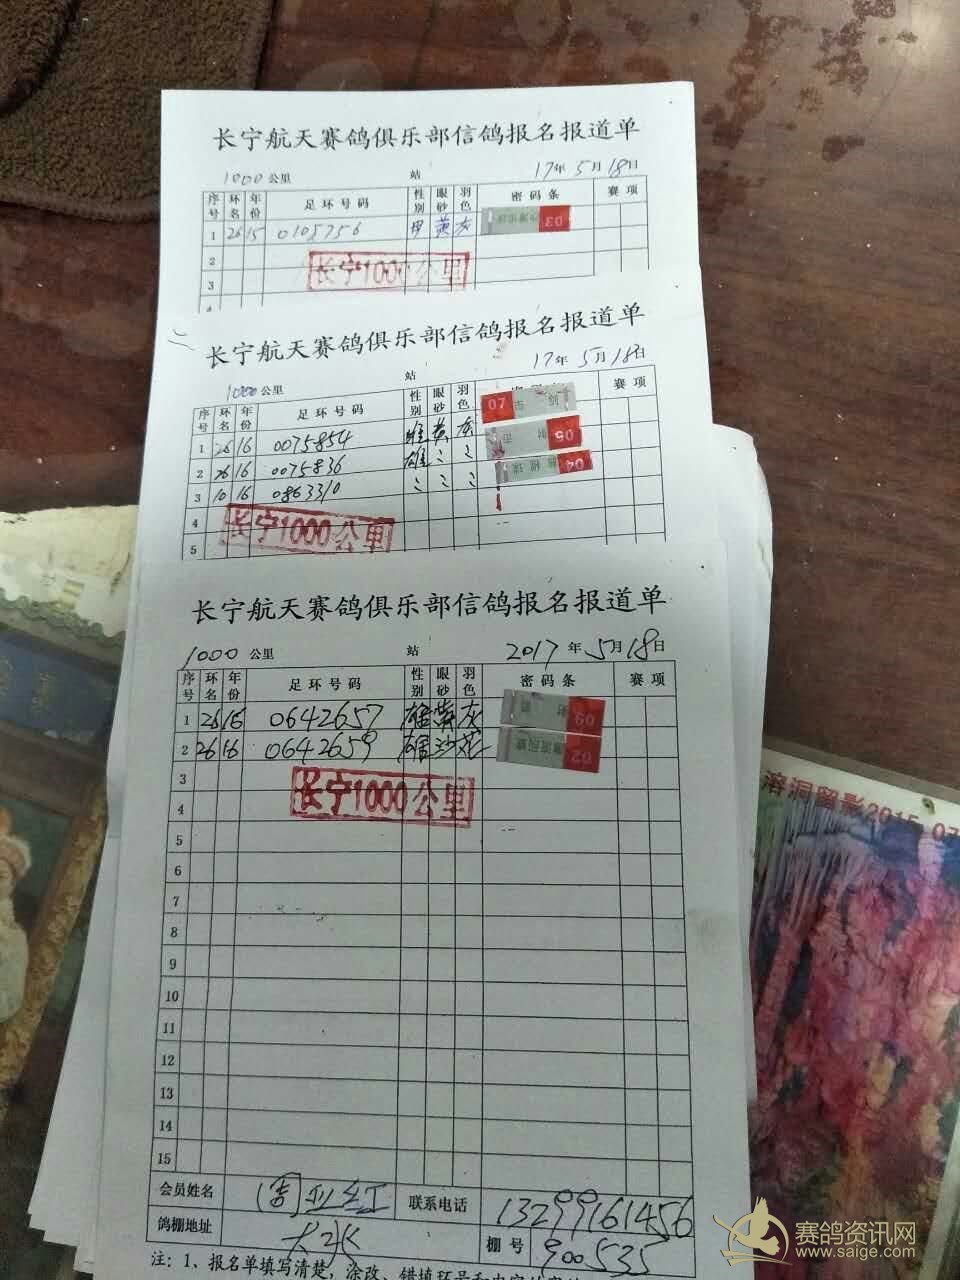 长宁航天赛鸽俱乐部信鸽报名报道单
1000公里 站 17年5月18日
序号 环名 年份 足环号码 性别 眼砂 羽色 密码条 赛项
1 26 15 0105756 黄 灰 03
2
3
长宁1000公里
二
长宁航天赛鸽俱乐部信鸽报名报道单
1000公里 站 17年5月18日
序号 环名 年份 足环号码 性别 眼砂 羽色 赛项
1 26 16 0075854 雌 黄 灰 07
2 26 16 0075836 雄 〃 〃 05
3 10 16 0863310 〃 〃 〃 04
4
5
长宁1000公里
长宁航天赛鸽俱乐部信鸽报名报道单
1000公里 站 2017年5月18日
序号 环名 年份 足环号码 性别 眼砂 羽色 密码条 赛项
1 26 15 0642657 雄 黄 灰 09
2 26 16 0642659 雄 沙 花 02
3
长宁1000公里
4
5
6
7
8
9
10
11
12
13
14
15
会员姓名 周亚红 联系电话 13299161456
鸽棚地址 棚号 900535
注：1、报名单填写清楚，涂改、错填环号
溶洞留影2015.07
赛鸽资讯网
www.saige.com